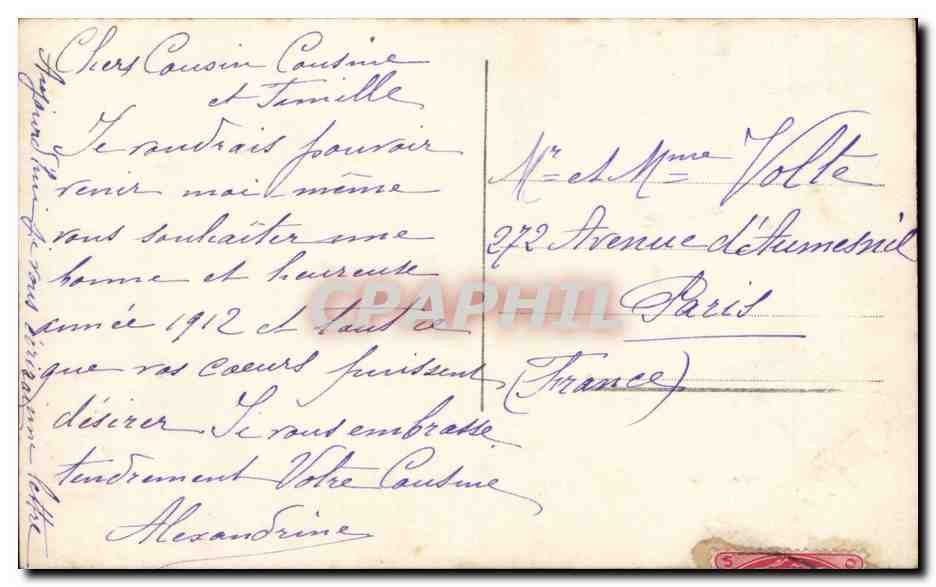 Chers Cousin Cousine
et famille
Je voudrais pouvoir
venir moi-même
vous souhaiter une
bonne et heureuse
année 1912 et tout ce
que vos coeurs puissent
désirer Je vous embrasse
tendrement Votre Cousine
Alexandrine
Aujourd'hui je vous écrirai une lettre
Mr et Mme Volte
272 Avenue d'Aumesnil
Paris
(France)
CPAPHIL
5 0